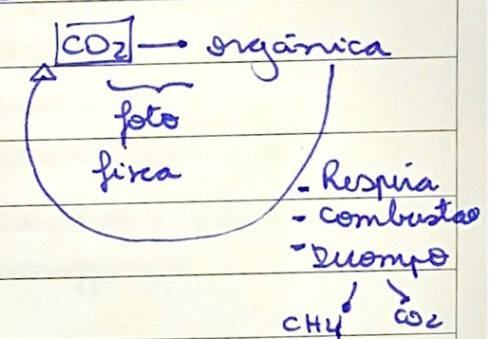 CO2 → orgânica
foto
fixa
- Respira
- Combustão
- Decompo
CH4 CO2